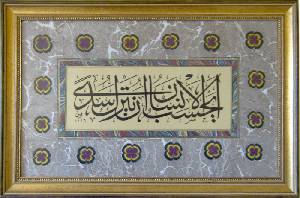 ايحسب الانسان ان يترك سدى